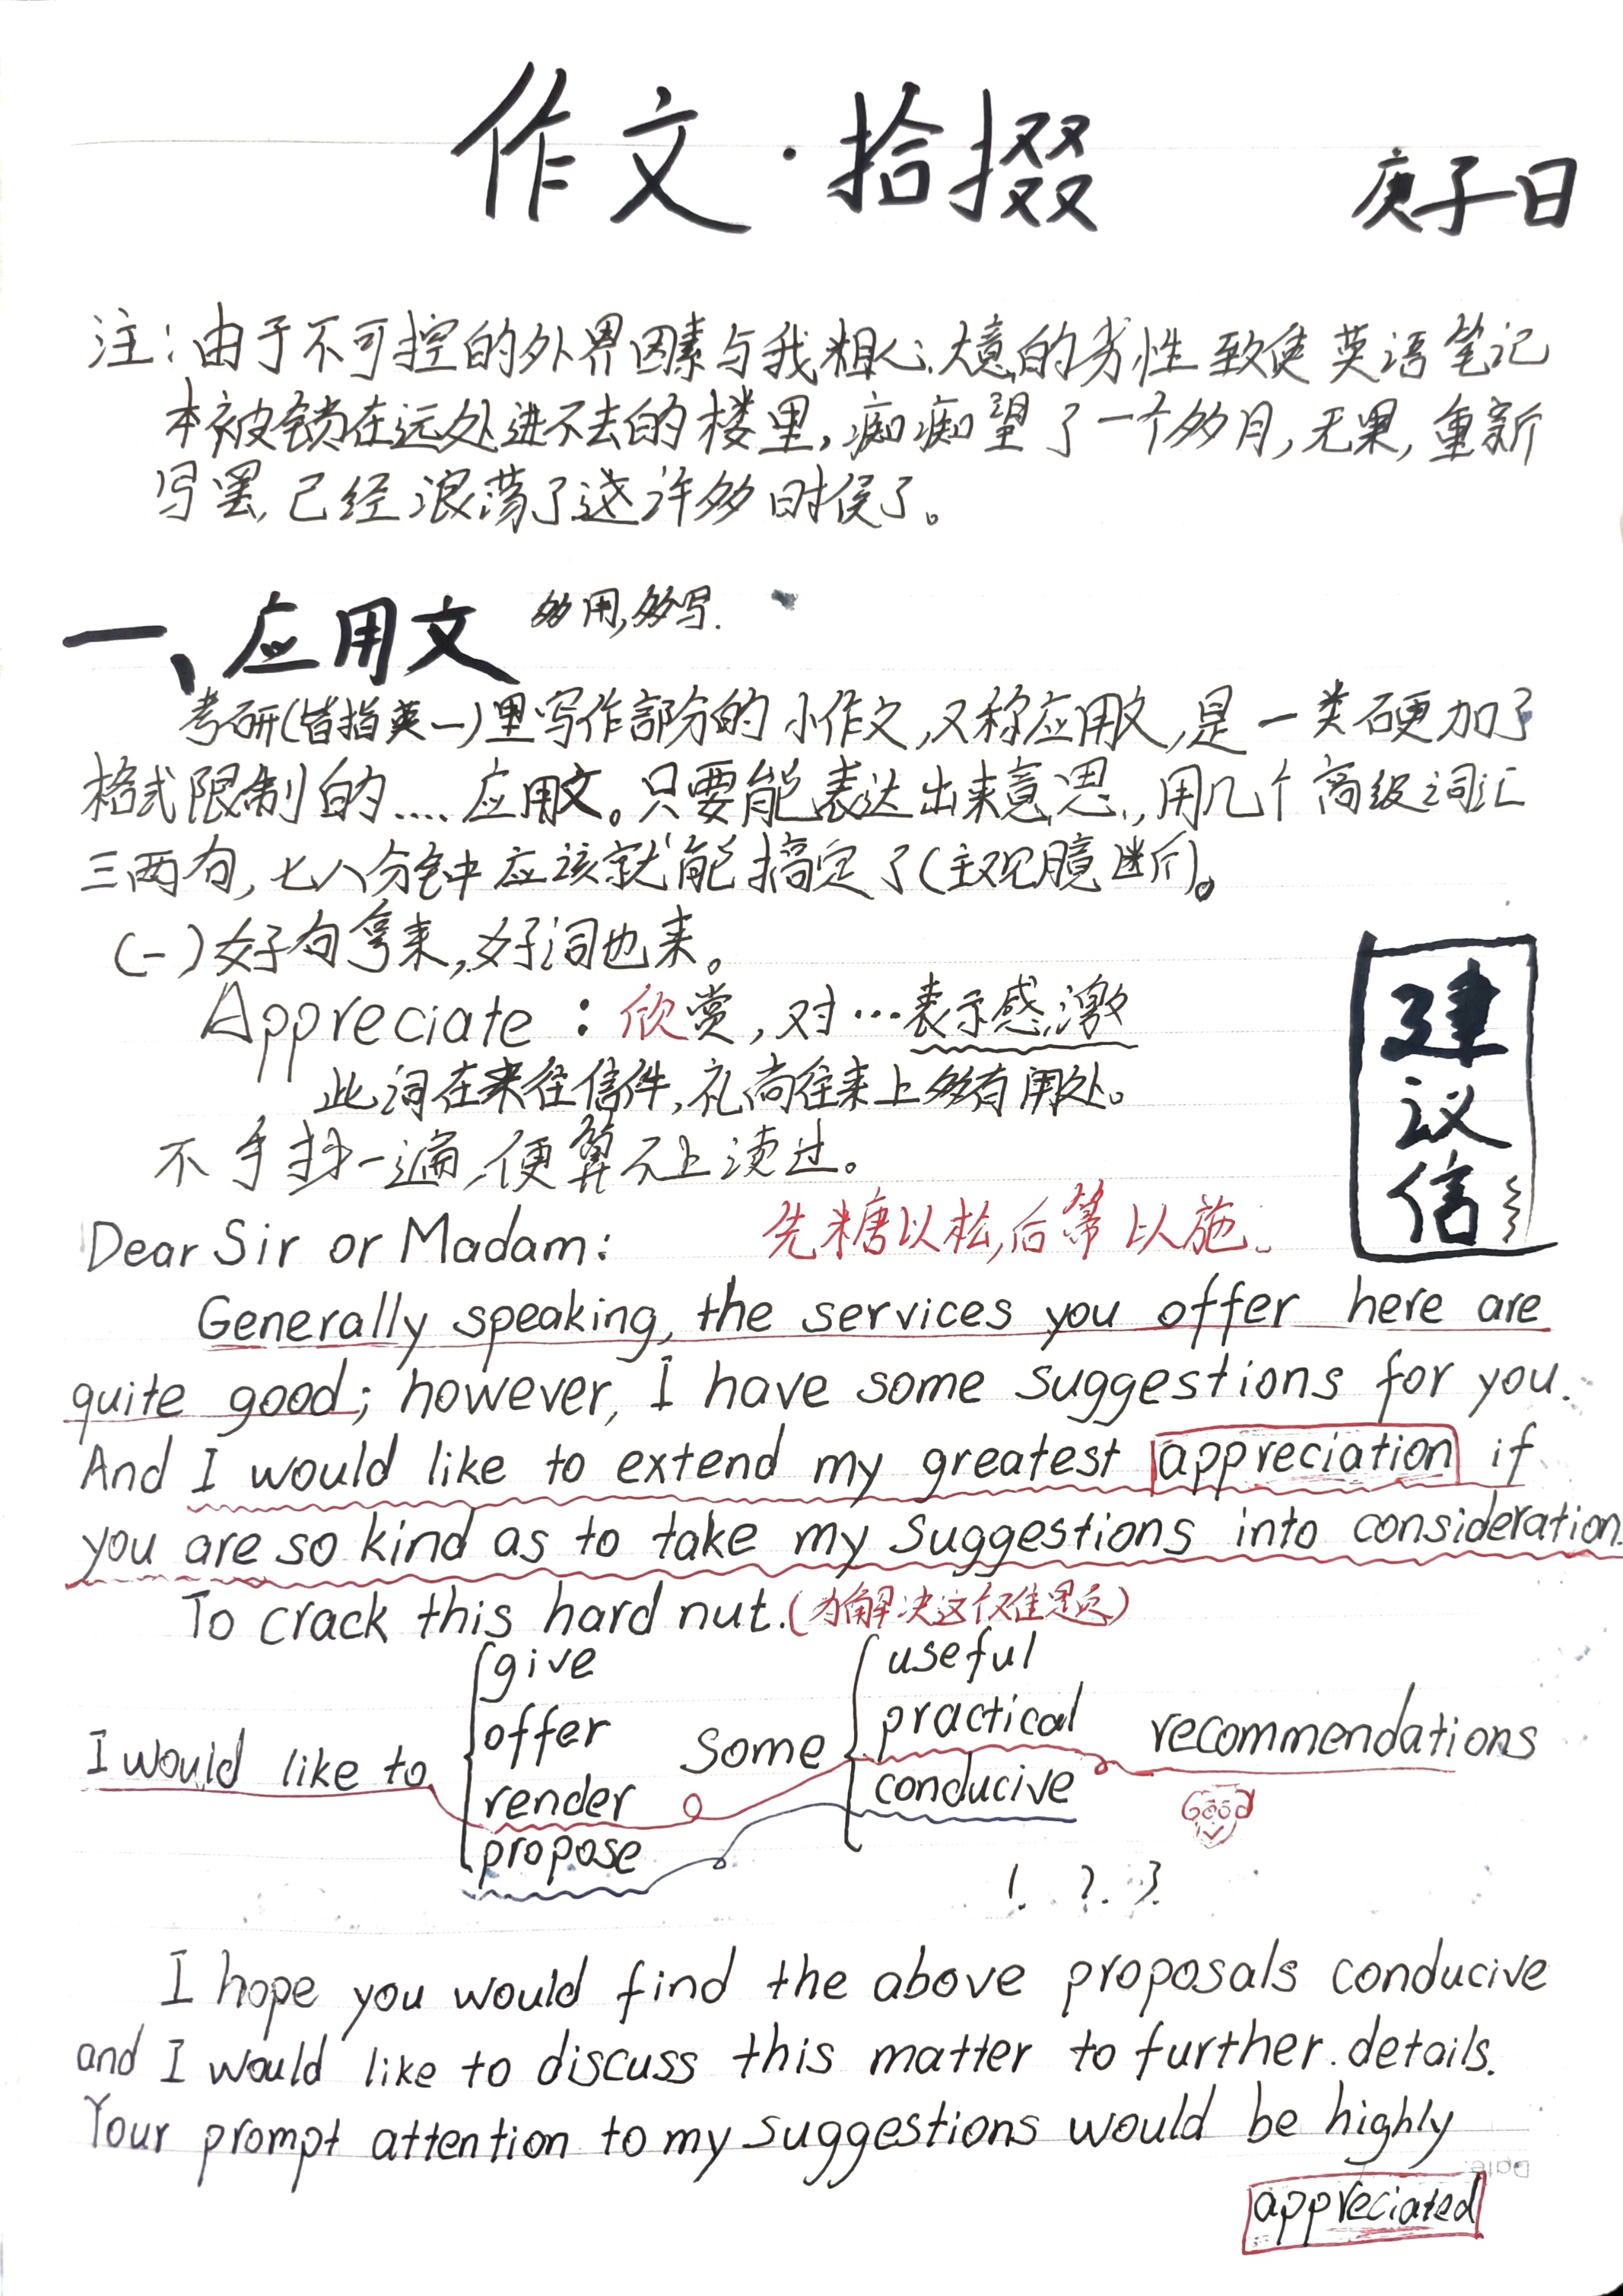 作文·拾掇
庚子日
注：由于不可控的外界因素与我粗心大意的劣性致使英语笔记
本被锁在远处进不去的楼里，痴痴望了一个多月，无果，重新
写罢，已经浪荡了这许多时候了。
一、应用文 多用，多写.
考研(皆指英一)里写作部分的小作文，又称应用文，是一类硬加了
格式限制的....应用文。只要能表达出来意思，用几个高级词汇
三两句，七八分钟应该就能搞定了(主观臆断)。
(一)好句拿来，好词也来。
Appreciate：欣赏，对…表示感激
此词在来往信件，礼尚往来上多有用处。
不手抄一遍，便算不上读过。
建议信
Dear Sir or Madam: 先糖以松，后箒以施。
Generally speaking, the services you offer here are
quite good; however, I have some suggestions for you.
And I would like to extend my greatest appreciation if
you are so kind as to take my suggestions into consideration.
To crack this hard nut.(为解决这个难题)
I would like to
give
offer
render
propose
some
useful
practical
conducive
recommendations
Good
1. 2. 3.
I hope you would find the above proposals conducive
and I would like to discuss this matter to further details.
Your prompt attention to my suggestions would be highly
appreciated